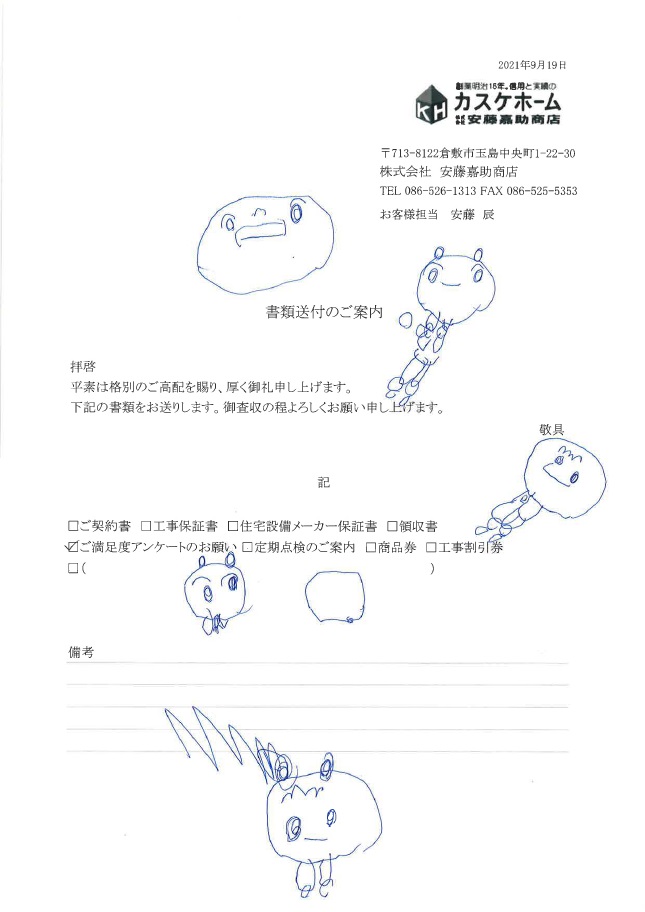 2021年9月19日
創業明治15年。信用と実績の
KH カスケホーム
株式会社 安藤嘉助商店
〒713-8122倉敷市玉島中央町1-22-30
株式会社 安藤嘉助商店
TEL 086-526-1313 FAX 086-525-5353
お客様担当 安藤 辰
書類送付のご案内
拝啓
平素は格別のご高配を賜り、厚く御礼申し上げます。
下記の書類をお送りします。御査収の程よろしくお願い申し上げます。
敬具
記
□ご契約書 □工事保証書 □住宅設備メーカー保証書 □領収書
☑ご満足度アンケートのお願い □定期点検のご案内 □商品券 □工事割引券
□( )
備考